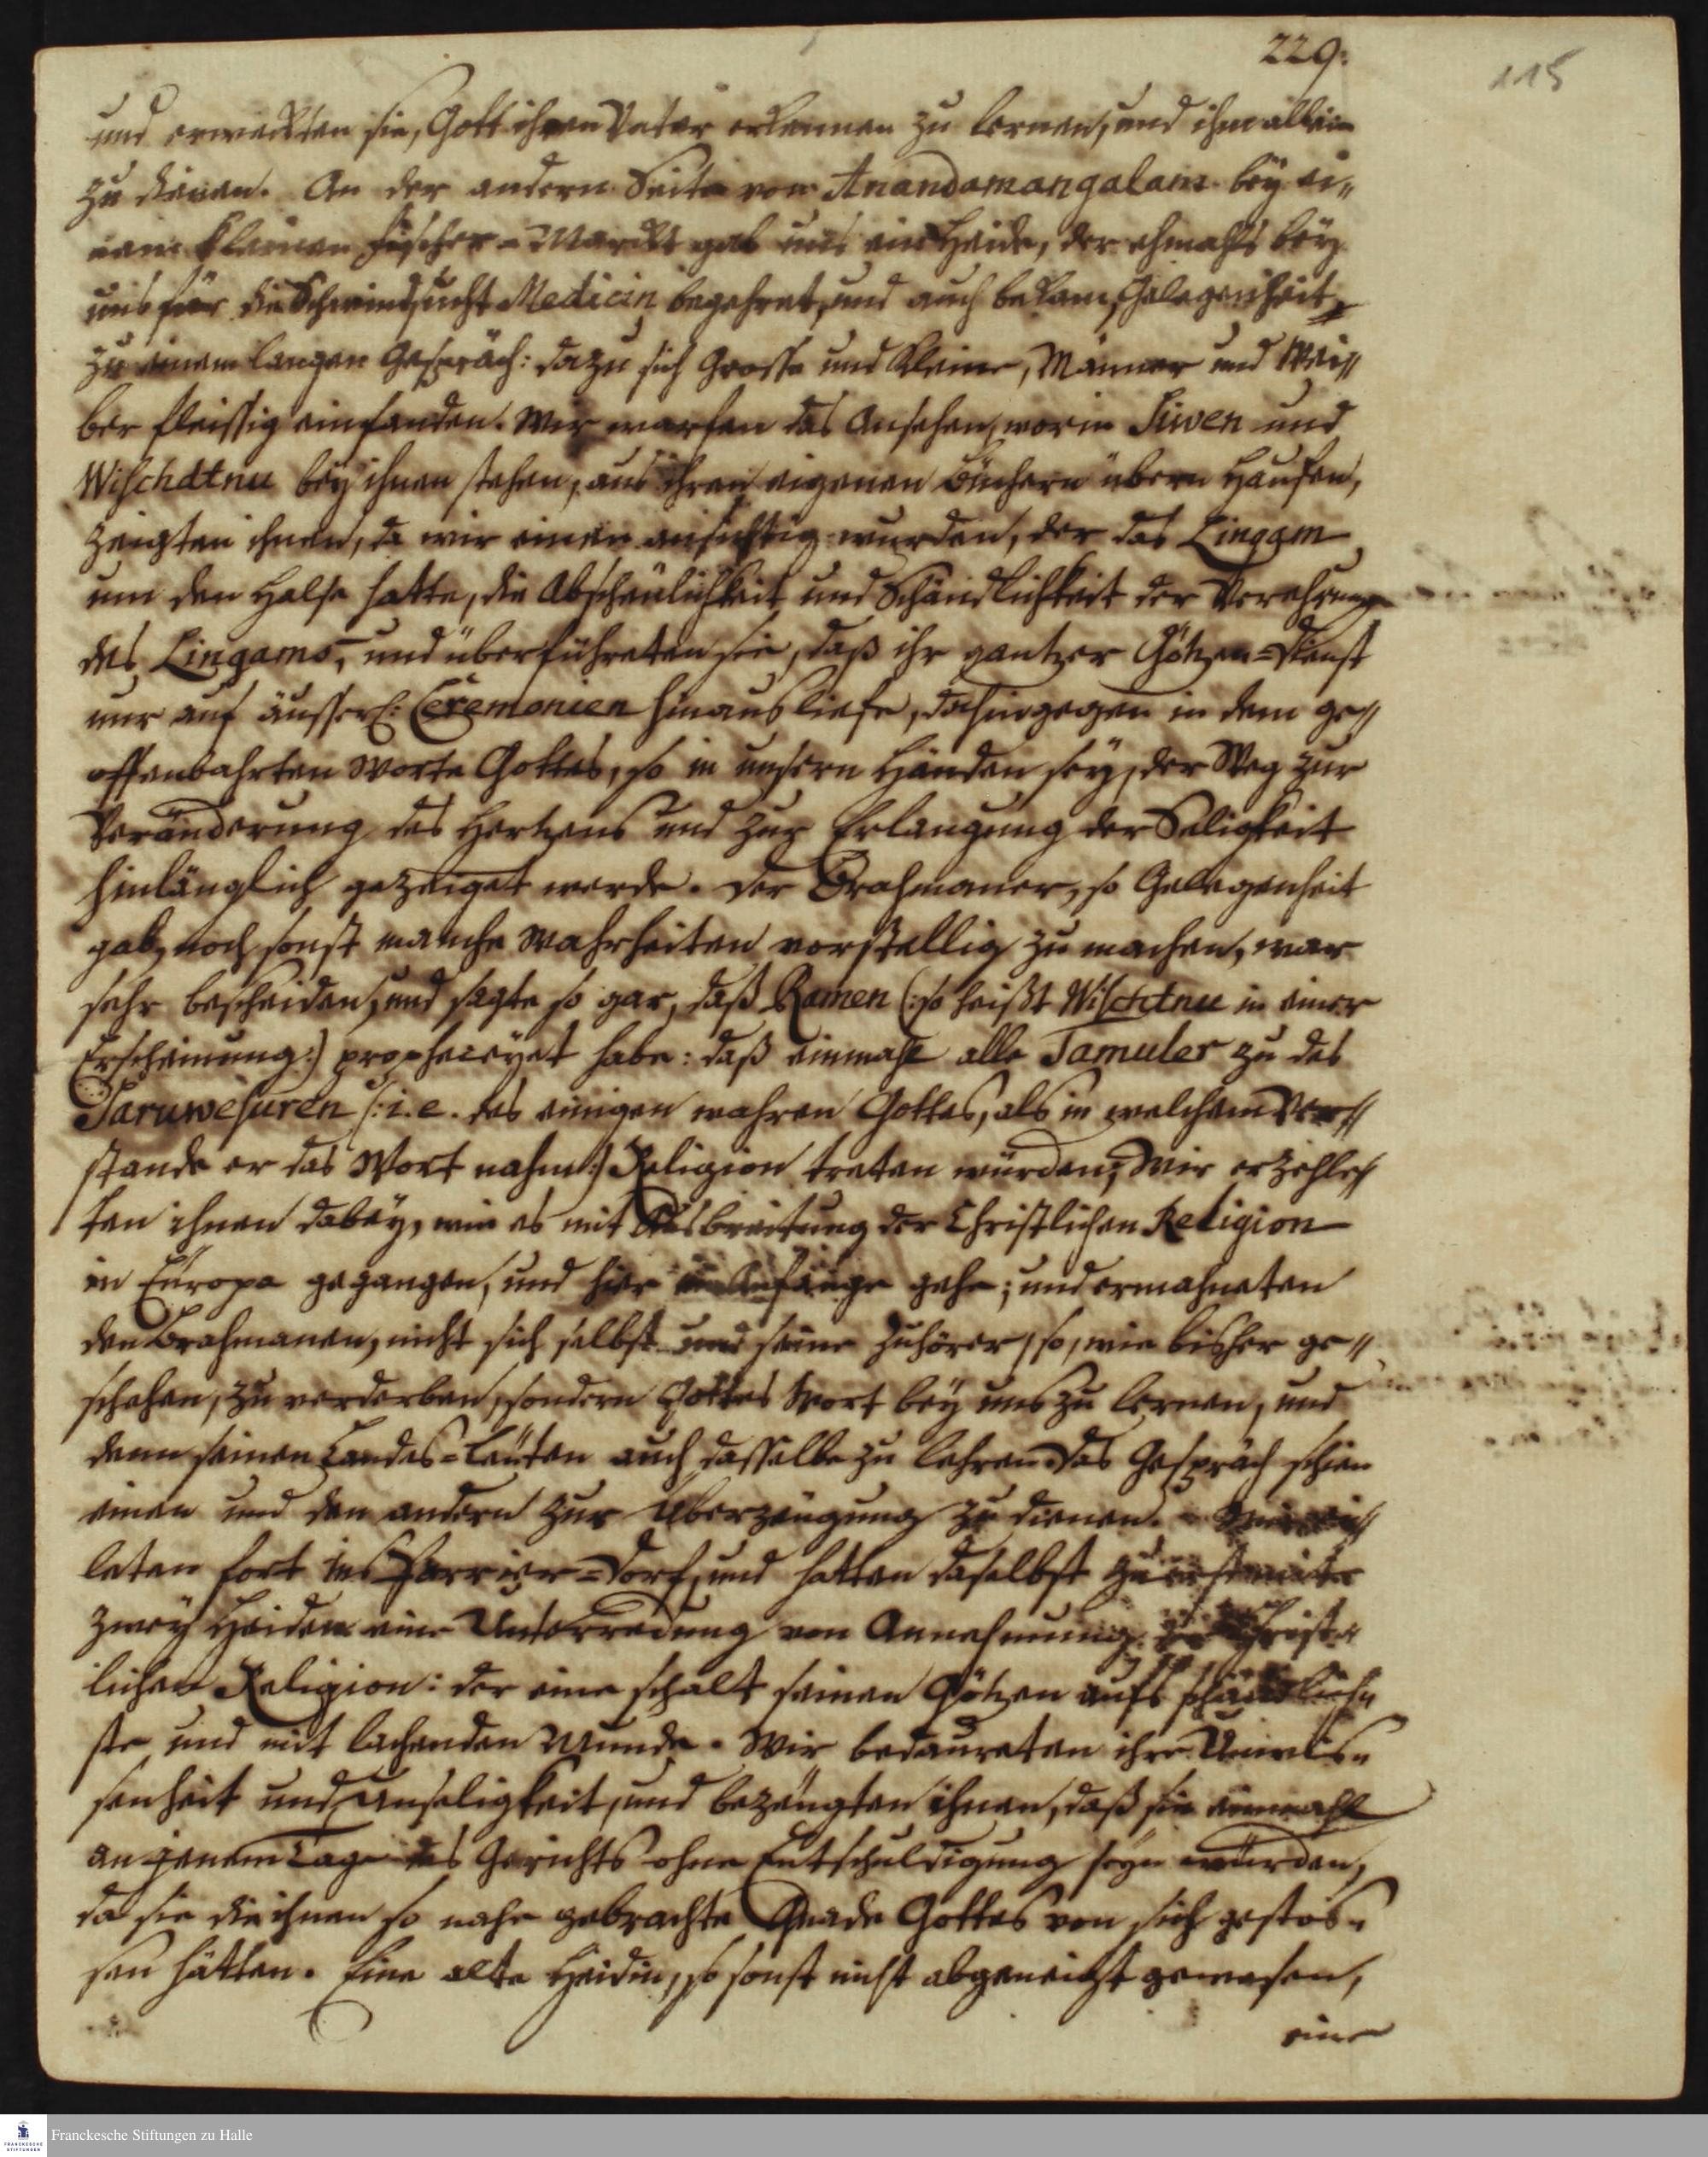 229.
115
und erweckten sie, Gott ihren Vater erkennen zu lernen, und ihm allein
zu dienen. An der andern Seite von Anandamangalam bey ei¬
nem kleinen Fischer-Marckt gab uns ein Heide, der ehmahls bey
uns für die Schwindsucht Medicin begehret, und auch bekam, Gelegenheit
zu einem langen Gespräch: dazu sich Grosse und Kleine, Männer und Wei¬
ber fleissig einfanden. Wir warfen das Ansehen, worin Siwen und
Wischdtnu bey ihnen stehen, aus ihren eigenen Büchern übern Haufen,
zeigten ihnen, da wir einen ansichtig wurden, der das Lingam
um den Halse hatte, die Abscheulichkeit und Schändlichkeit der Verehrung
des Lingams, und überführeten sie, daß ihr gantzer Götzen-Dienst
nur auf äusserl: Ceremonien hinausliefe, dahingegen in dem ge¬
offenbahrten Worte Gottes, so in unsern Händen sey, der Weg zur
Veränderung des Hertzens und zur Erlangung der Seligkeit
hinlänglich gezeiget werde. Der Brahmaner, so Gelegenheit
gab, noch sonst manche Wahrheiten vorstellig zu machen, war
sehr bescheiden, und sagte so gar, daß Ramen (: so heißt Wischtnu in einer
Erscheinung:) propheceyet habe: daß einmahl alle Tamuler zu des
Saruwesuren (: i. e. des einigen wahren Gottes, als in welchem Ver¬
stande er das Wort nahm:) Religion treten würden; Wir erzehle¬
ten ihnen dabey, wie es mit Ausbreitung der Christlichen Religion
in Europa gegangen, und hier im Anfange gehe; und ermahneten
den Brahmanen, nicht sich selbst und seine Zuhörer, so, wie bisher ge¬
schehen, zu verderben, sondern Gottes Wort bey uns zu lernen, und
denn seinen Landes-Leuten auch dasselbe zu lehren. Das Gespräch schien
einen und den andern zur Uberzeugung zu dienen. Wir ei¬
leten fort ins Parrier-Dorf, und hatten daselbst zu erst mit
zwey Heiden eine Unterredung von Annehmung der Christ¬
lichen Religion: der eine schalt seinen Götzen aufs schändlich¬
ste, und mit lachenden Munde. Wir bedaureten ihre Unwis¬
senheit und Unseligkeit, und bezeugten ihnen, daß sie einmahl
an jenem Tage des Gerichts ohne Entschuldigung seyn würden,
da sie die ihnen so nahe gebrachte Gnade Gottes von sich gestos¬
sen hätten. Eine alte Heidin, so sonst nicht abgeneigt gewesen,
eine
Franckesche Stiftungen zu Halle